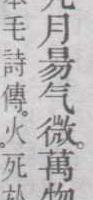 九月昜气微。萬物
本毛詩傳。火死於